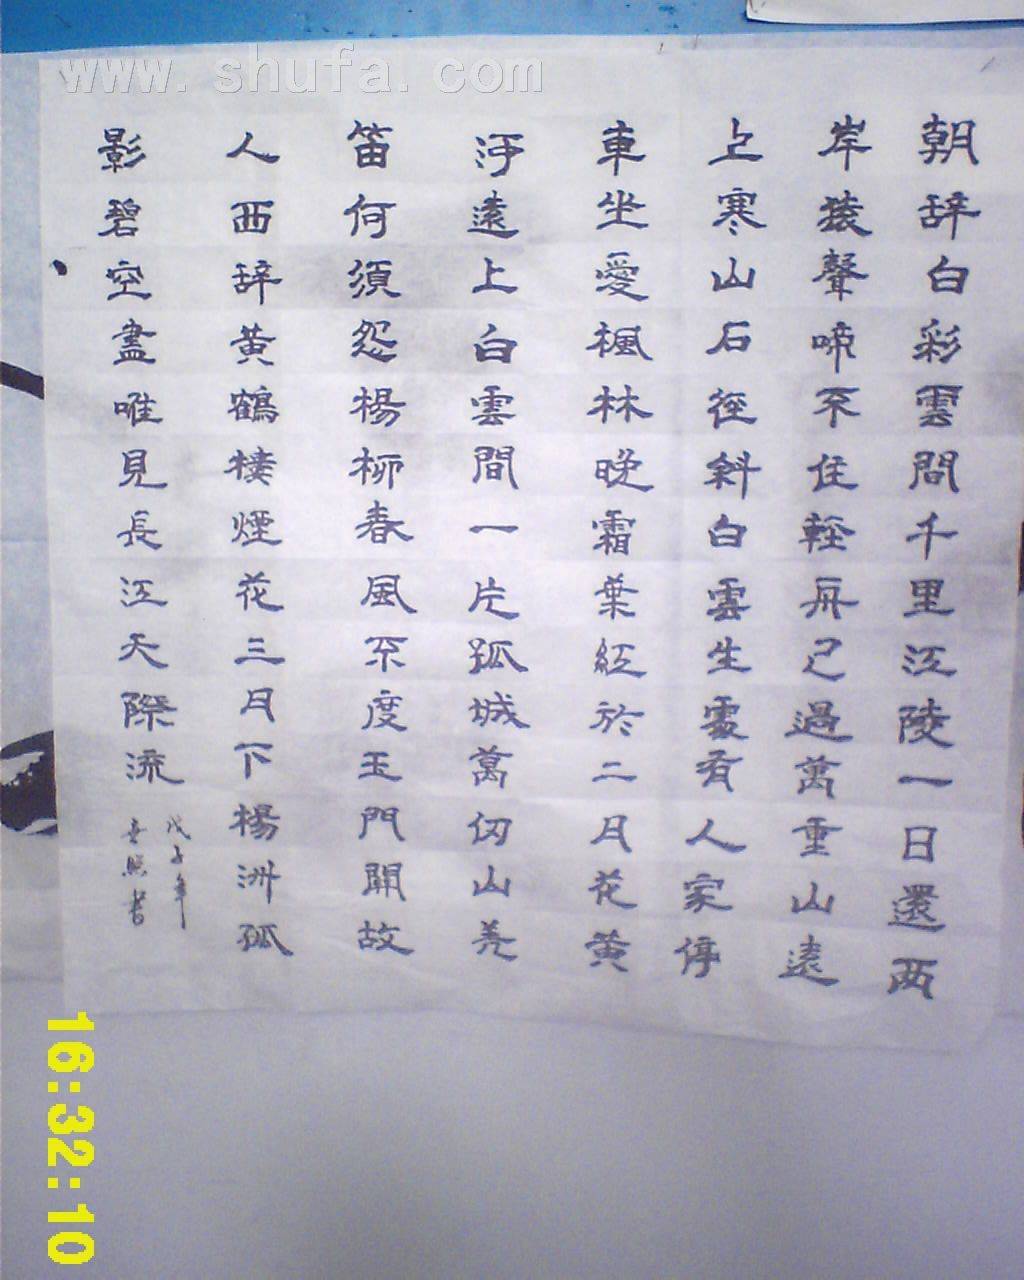 www.shufa.com
朝辞白彩雲間千里江陵一日還两
岸猿聲啼不住輕舟已過萬重山遠
上寒山石徑斜白雲生處有人家停
車坐愛楓林晚霜葉紅於二月花黄
河遠上白雲間一片孤城萬仞山羌
笛何須怨楊柳春風不度玉門關故
人西辞黄鶴樓煙花三月下楊洲孤
影碧空盡唯見長江天際流
戊子年
書
16:32:10